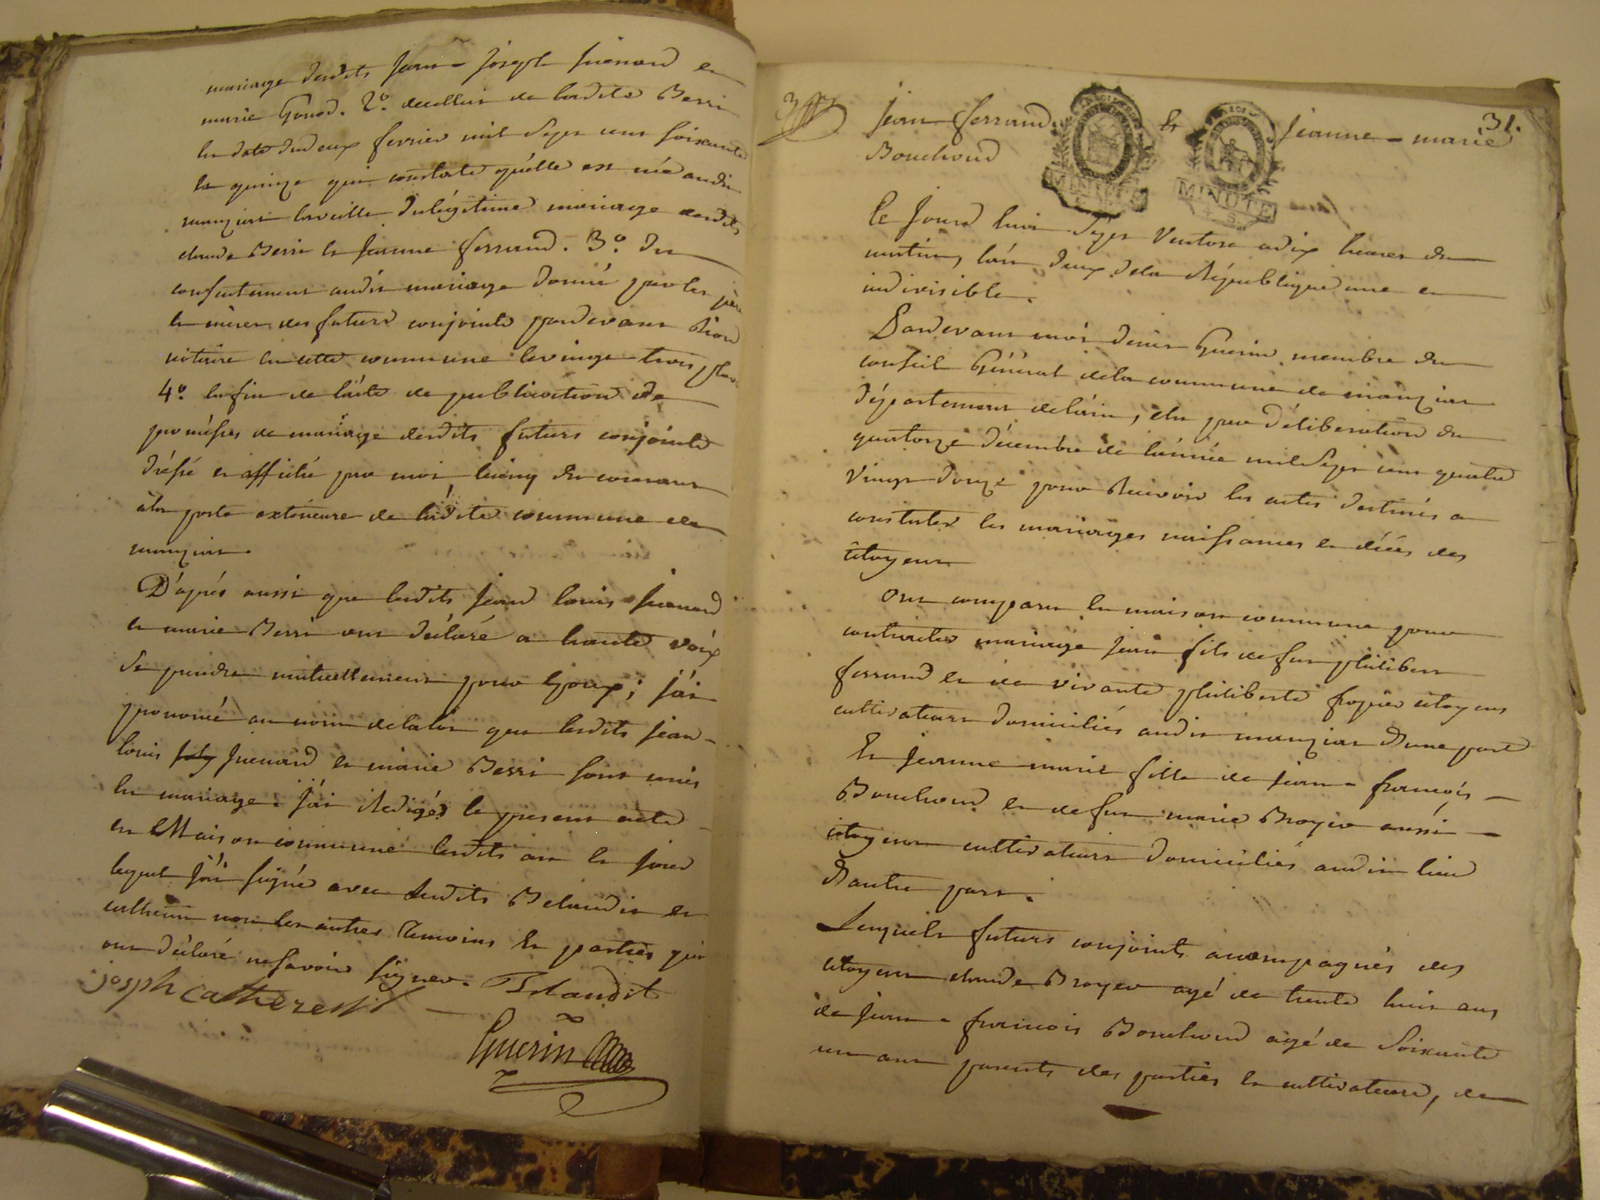 mariage desdits jean - joseph juenard et
marie Gonod. 2º. decelluis de ladite Berri
en date du deux fevrier mil sept cent soixante
et quinze qui constate qu'elle est née audit
manziat laveille du légitime mariage desdits
claude Berri et jeanne ferrand. 3º. du
consentement audit mariage donné par les père
et mères des futurs conjoints pardevant
notaire en cette commune levingt trois
4º. enfin de l'acte de publication de
promésses de mariage desdits futurs conjoints
dréssé et affiché par moi, lecinq du courant
àla porte extérieure de ladite commune de
manziat.
D'aprés aussi que lesdits jean louis juenard
et marie Berri ont déclaré a haute voix
se prendre mutuellement pour Epoux; j'ai
prononcé au nom delaloi que lesdits jean-
louis juenard et marie Berri sont unis
en mariage. j'ai Rédigés le présent acte
en Maison commune lesdits an et jour
lequel j'ai signé avec lesdits Belaudit et
catherin non les autres témoins et parties qui
ont déclaré nesavoir signer.
joseph catherest
Guerin
31.
jean ferrand et jeanne - marie
Bouchoud
MINUTE MINUTE
Ce jourd huis sept Ventose adix heures du
matin, l'an deux dela République une et
indivisible.
Pardevant moi denis Guerin membre du
conseil Général dela commune de manziat
département delain, élu par délibération du
quatorze décembre de l'année mil sept cent quatre
Vingt douze pour Recevoir les actes destinés a
constater les mariages naissances et décés des
citoyens
Ont comparu en maison commune pour
contracter mariage jean fils de feu philibert
ferrand et de vivante philiberte froyer citoyens
cultivateurs domiciliés audit manziat d'une part
Et jeanne marie fille de jean - francois -
Bouchoud et de feu marie Broyer aussi -
citoyens cultivateurs domiciliés audit lieu
d'autre part.
Lesquels futurs conjoints accompagnés des
citoyens claude Broyer agé de trente huit ans
de jean - francois Bouchoud agé de soixante
un ans parents des parties et cultivateurs, de